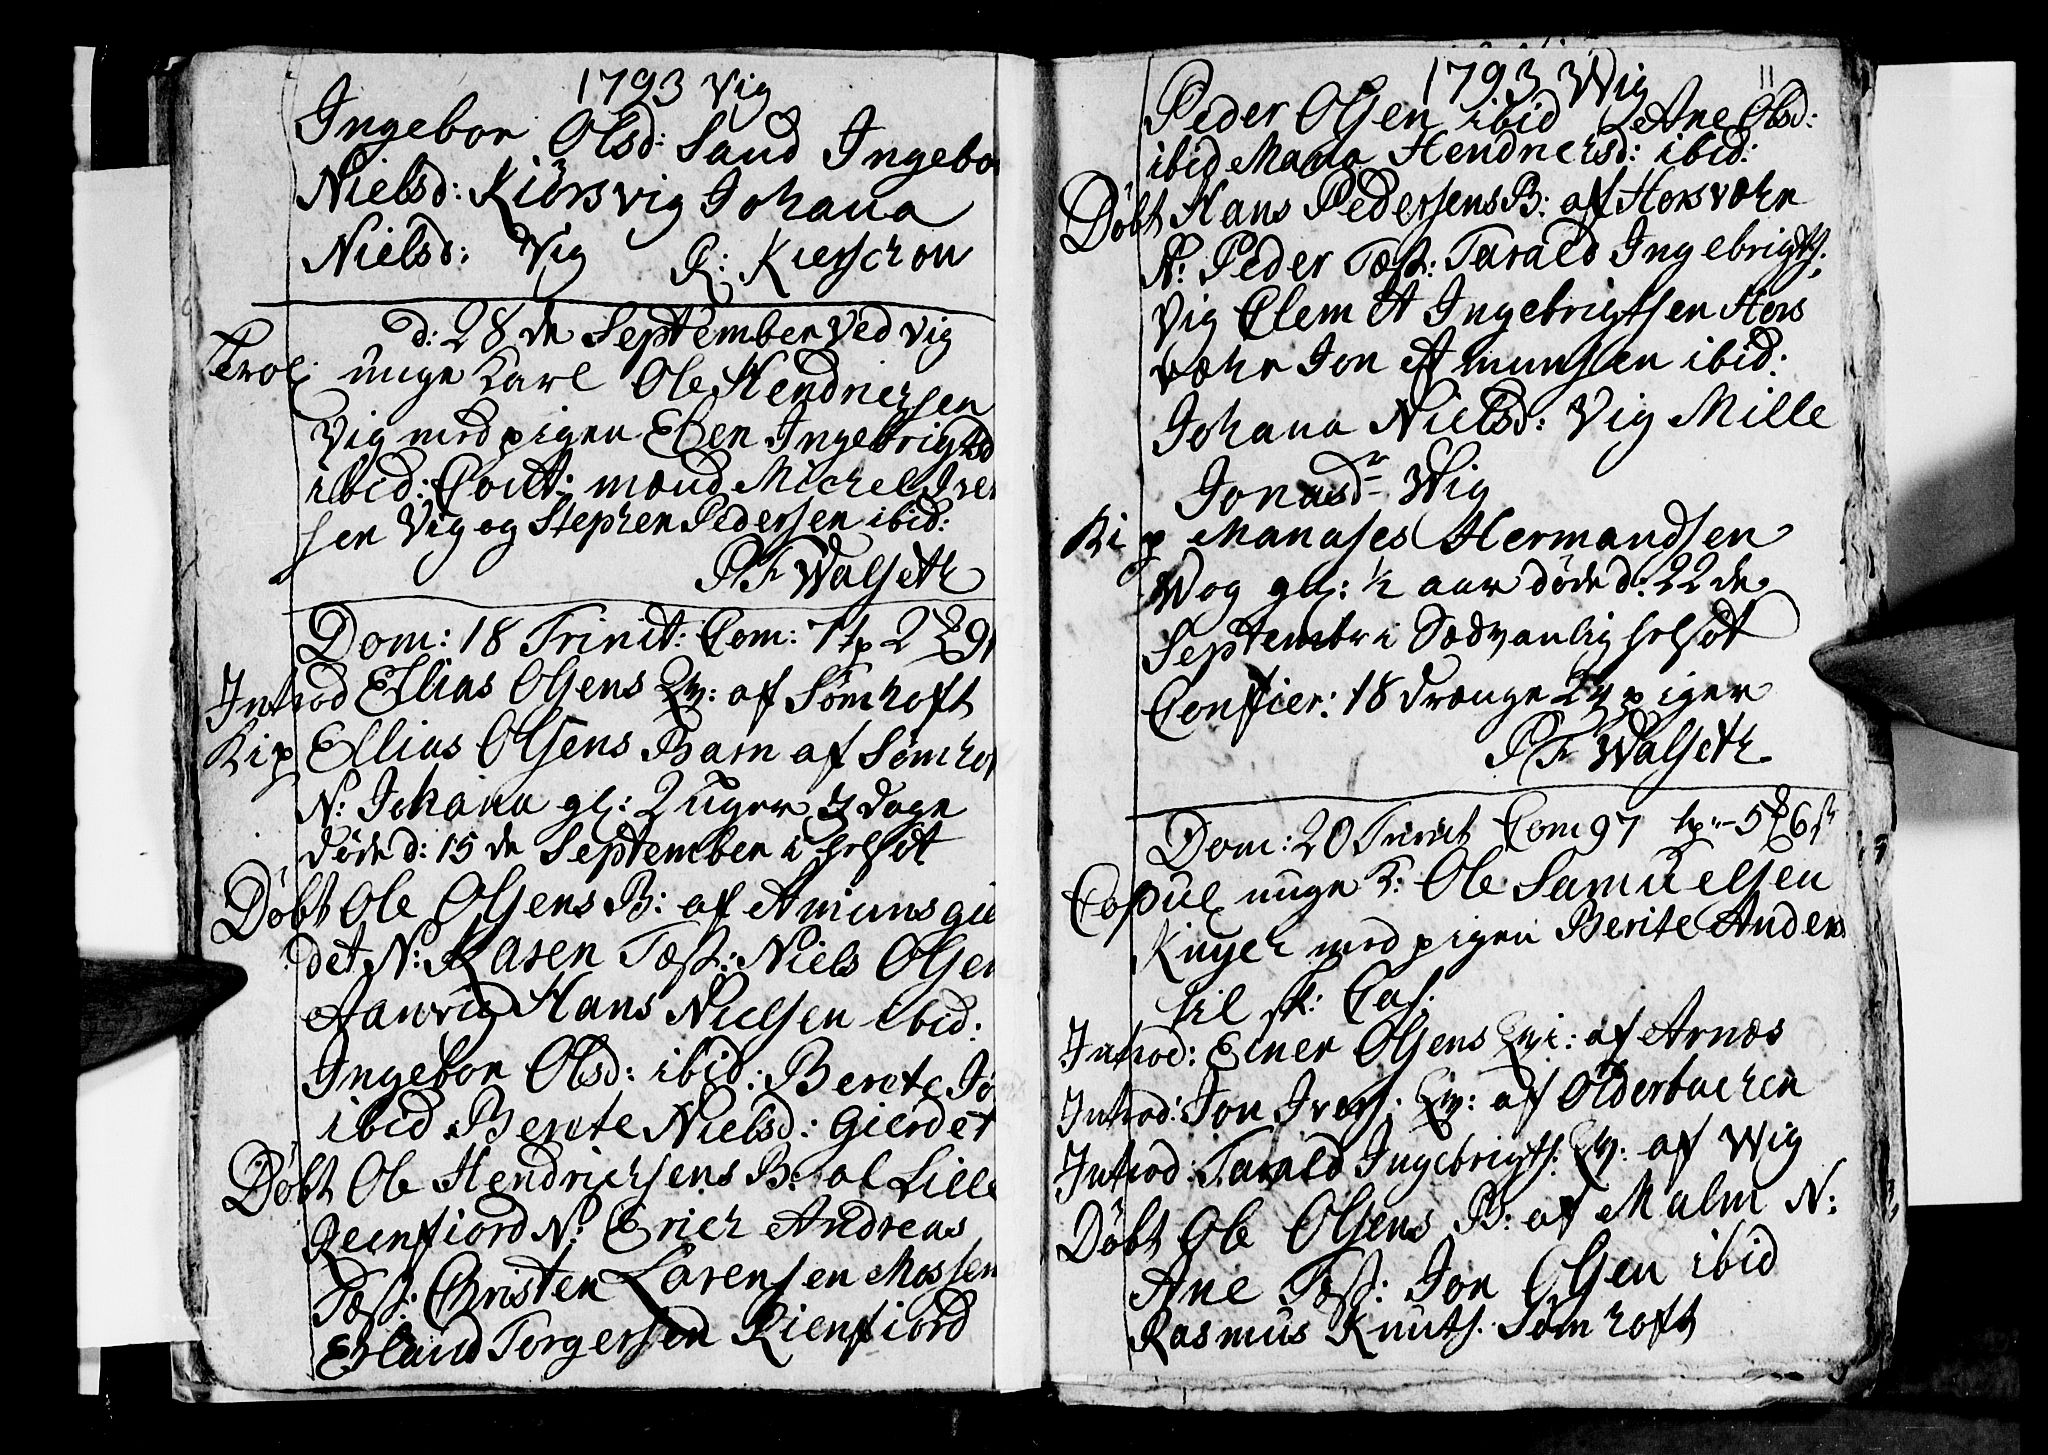 1793 Vig
Ingebor Olsd: Sand Ingebor
Nielsd: Kiørsvig Johana
Nielsd: Vig P: Kierschow
d: 28 de September ved Vig
Trol: unge Karl Ole Hendrichsen
Vig med pigen Elen Ingebrigtsd
ibid: Cout: mænd Michel Iver
sen Vig og Stephen Pedersen ibid:
P F Walseth
Dom: 18 Trinit: Com: 71 tp 2
Introd Ellias Olsens Qv: af Sømhoft
Kip Ellias Olsens Barn af Sømhof
N: Johana gl: 2 uger 3 dage
døde d: 15 de September i helsot
Døbt Ole Olsens B: af Amunsgier
det N: Karen Test: Niels Olsen
Aanvig Hans Nielsen ibid:
Ingebor Olsd: ibid: Berete Jo
ibid Berete Nielsd: Gierdet
Døbt Ole Hendrichsens B: af Lille
Reenfiord N: Erich Andreas
Test: Christen Larensen Mossem
Erland Torgersen Rienfiord
1793 Wig
11
Peder Olsen ibid Ane Olsd:
ibid Mana Hendrichsd: ibid:
Døbt Hans Pedersens B: af Horsvæhr
N: Peder Test: Tarald Ingebrigts:
Vig Clemet Ingebrigtsen Hors
væhr Jon Amunsen ibid:
Johana Nielsd: Vig Mille
Jonasdr Wig
Kip Manases Hermandsen
Wog gl: 1/2 aar døde d: 22 de
Septembr i Sædvanlig helsot
Confier: 18 drænge 24 piger
P F Walseth
Dom: 20 Trinit Com 97 tp 5 6
Copul unge K: Ole Samuelsen
Knych med pigen Berite Anders
til
Introd: Einer Olsens Qvi: af Arnæs
Introd: Jon Ivers: Qv: af Olderbachen
Introd: Tarald Ingebrigts: Qv: af Wig
Døbt Ole Olsens B: af Malm N:
Ane Test: Jon Olsen ibid
Rasmus Knuts: Sømhoft